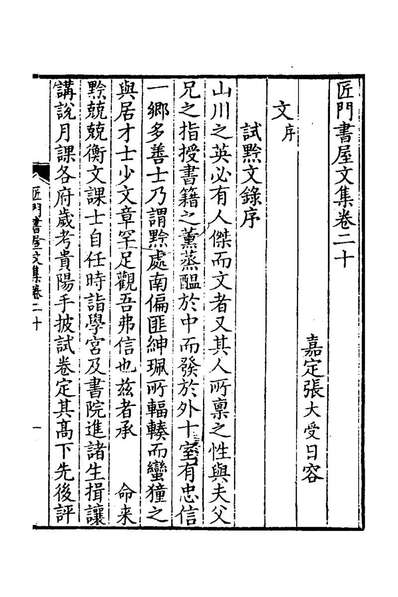 匠門書屋文集卷二十
嘉定張大受日容
文序
試黔文錄序
山川之英必有人傑而文者又其人所稟之性與夫父
兄之指授書籍之薰蒸醞於中而發於外十室有忠信
一鄉多善士乃謂黔處南偏匪紳珮所輻輳而蠻獞之
與居才士少文章罕足觀吾弗信也茲者承　命来
黔兢兢衡文課士自任時詣學宮及書院進諸生揖讓
講說月課各府歲考貴陽手披試卷定其髙下先後評
匠門書屋文集卷二十
一